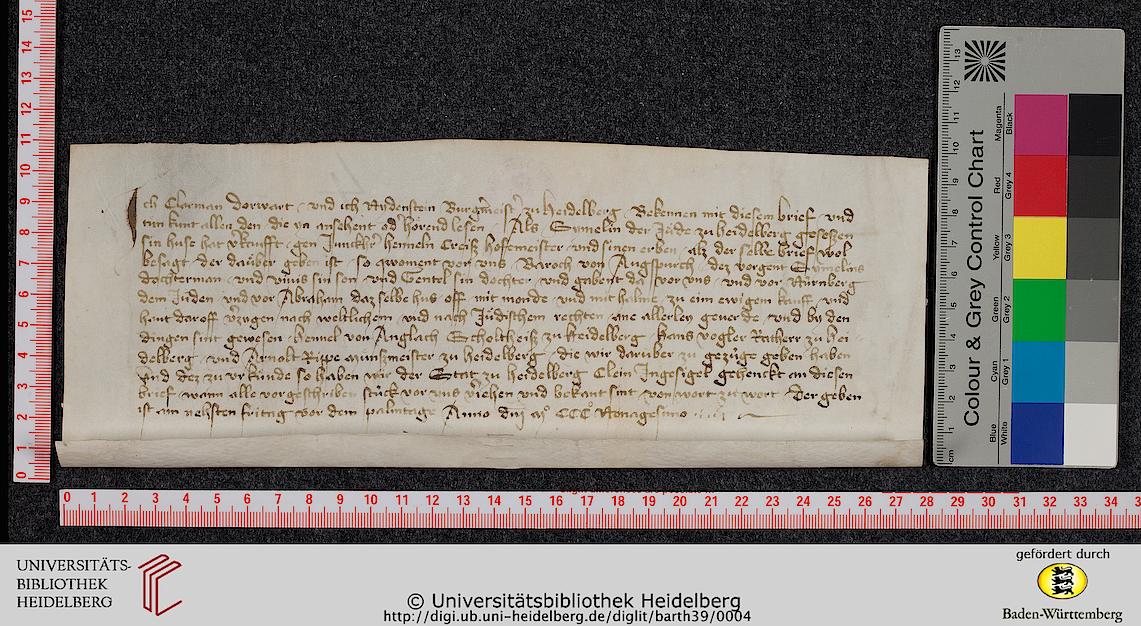 Ich Clasman Dorwart und ich Rudenstein Burgmeist zu Heidelberg Bekennen mit diesem brief und
tun kunt allen den die yn ansehent od horend lesen Als Symelin der Jude zu heidelberg geseßen
sin huse hat vkaufft gen Junckhr hennelin Creiß hofemeister und sinen erben alz der selbe brief wol
besagt der dauber geben ist so qwoment vor uns Baroch von Augspurch dez vorgent Symelins
dochterman und sin son und Gentel sin dochter und gabent da vor uns und vor Nurnberg
dem Juden und vor Abraham daz selbe hus off mit monde und mit halme zu eim ewigem kauff und
hant daroff vzigen nach weltlichem und nach Judischem rechten ane allerley geverde und by den
dingen sint gewesen hennel von Anglach Scholtheiß zu heidelberg hans vogler Ratherr zu hei
delberg und Arnolt Rype munßmeister zu heidelberg die wir daruber zu gezuge geben haben
Und dez zu urkunde so haben wir der Stat zu heidelberg Clein Ingesigel gehenckt an diesen
brief wann alle vorgeschriben stuck vor uns viehen und bekant sint von wort zu wort Der geben
ist am nehsten fritag vor dem palmtage Anno dni mo CCC Nonagesimo
Colour & Grey Control Chart
Magenta Red Yellow Green Cyan Blue
Black Grey 4 Grey 3 Grey 2 Grey 1 White
cm 1 2 3 4 5 6 7 8 9 10 11 12 13
15 14 13 12 11 10 9 8 7 6 5 4 3 2 1 0
0 1 2 3 4 5 6 7 8 9 10 11 12 13 14 15 16 17 18 19 20 21 22 23 24 25 26 27 28 29 30 31 32 33 34
UNIVERSITÄTS-
BIBLIOTHEK
HEIDELBERG
© Universitätsbibliothek Heidelberg
http://digi.ub.uni-heidelberg.de/diglit/barth39/0004
gefördert durch
Baden-Württemberg